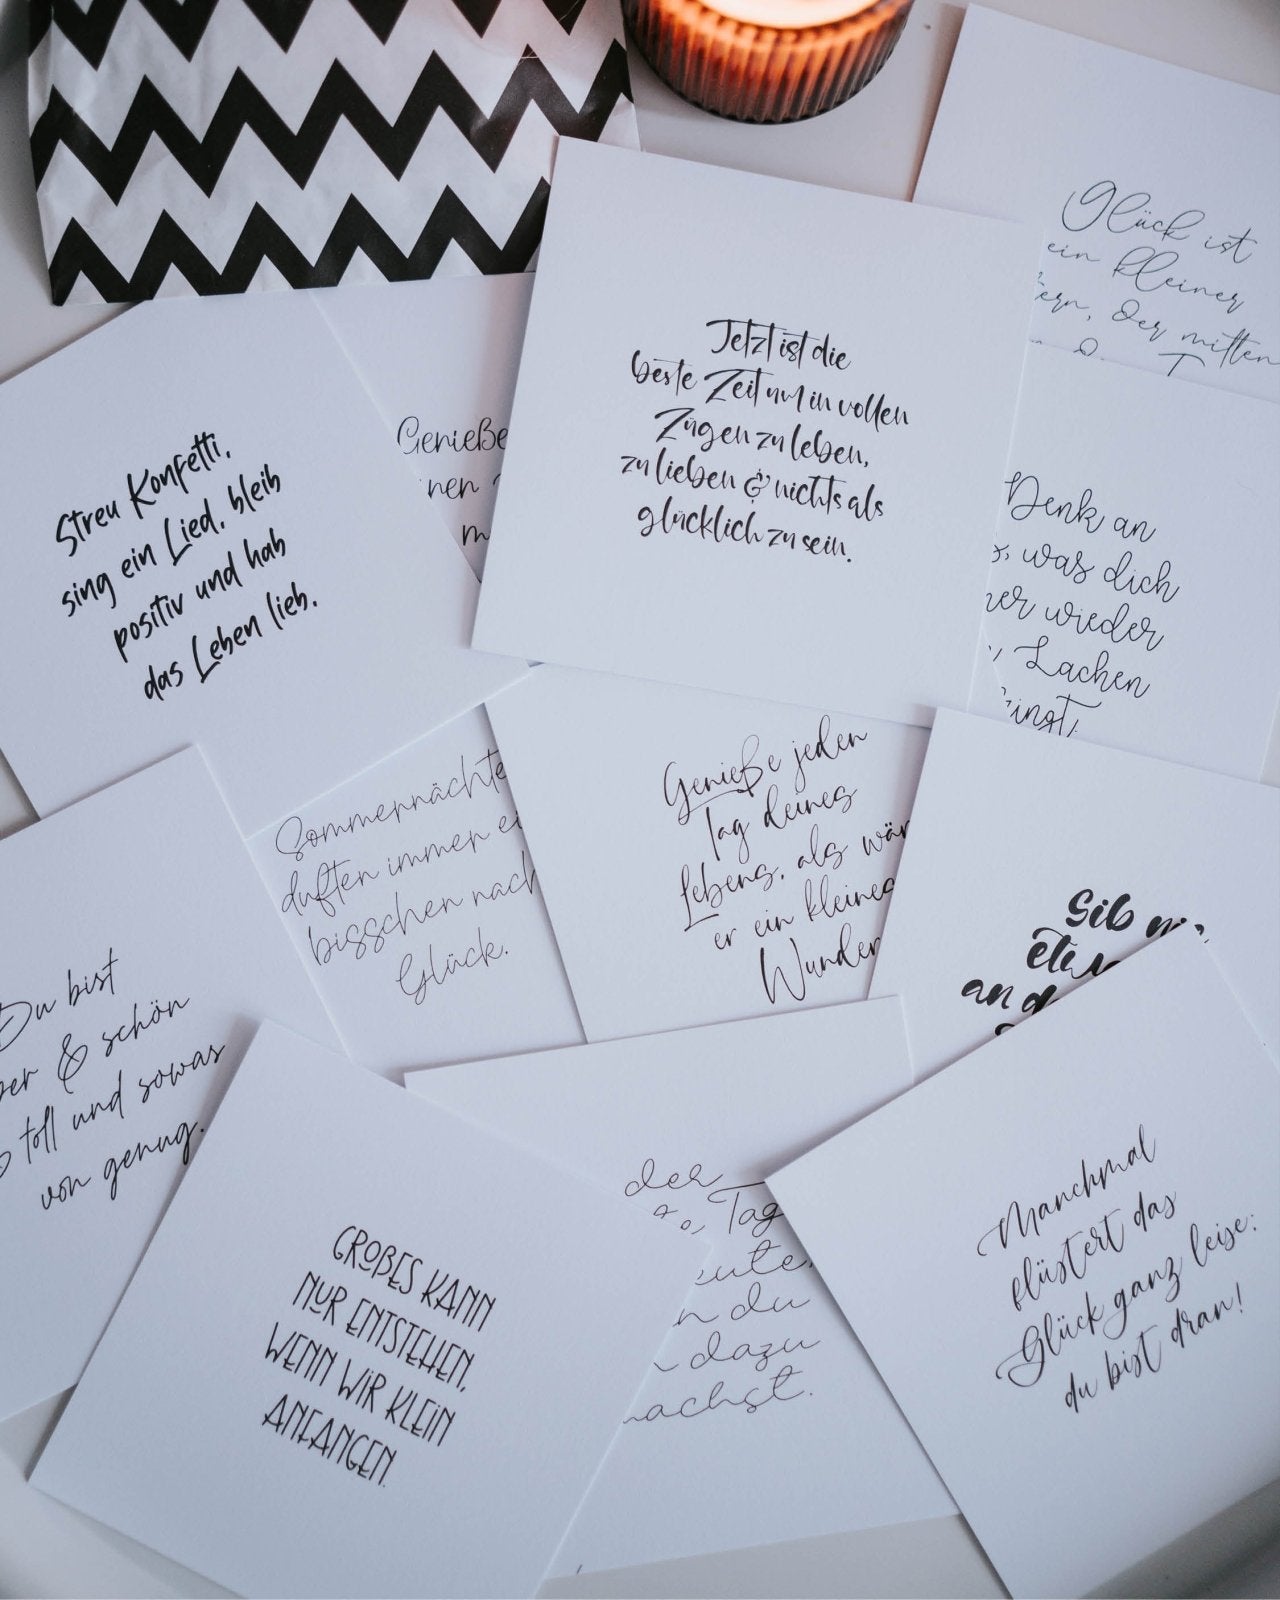 Glück ist
ein kleiner
der mitten
Jetzt ist die
beste Zeit um in vollen
Zügen zu leben,
zu lieben & nichts als
glücklich zu sein.
Genieße
m
Streu Konfetti,
sing ein Lied, bleib
positiv und hab
das Leben lieb.
Denk an
was dich
wieder
Lachen
Sommernächte
duften immer ei
bisschen nach
Glück.
Genieße jeden
Tag deines
Lebens, als wär
er ein kleines
Wunder
an d
Du bist
& schön
toll und sowas
von genug.
GROßES KANN
NUR ENTSTEHEN,
WENN WIR KLEIN
ANFANGEN.
der
Tag
du
dazu
Manchmal
flüstert das
Glück ganz leise:
du bist dran!